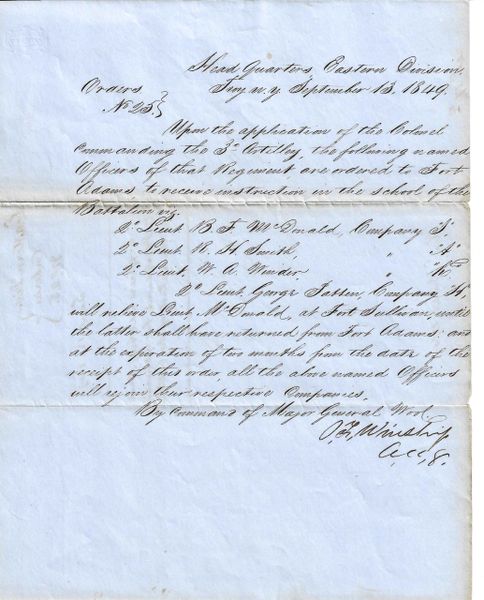 Head Quarters, Eastern Division.
Troy N.Y. September 13, 1849.
Orders
No 25.
Upon the application of the Colonel
Commanding the 3d Artilley, the following named
Officers of that Regiment are ordered to Fort
Adams to receive instruction in the school of the
Battalion viz:
2d Lieut. B. F. McDonald, Company
2d Lieut. R. H. Smith, " "A"
2d Lieut. W. A. Winder " "K"
2d Lieut. George Patten, Company H,
will relieve Lieut. McDonald, at Fort Sullivan, until
the latter shall have returned from Fort Adams; and
at the expiration of two months from the date of the
receipt of this order, all the above named Officers
will rejoin their respective Companies.
By Command of Major General Wool,
Winship